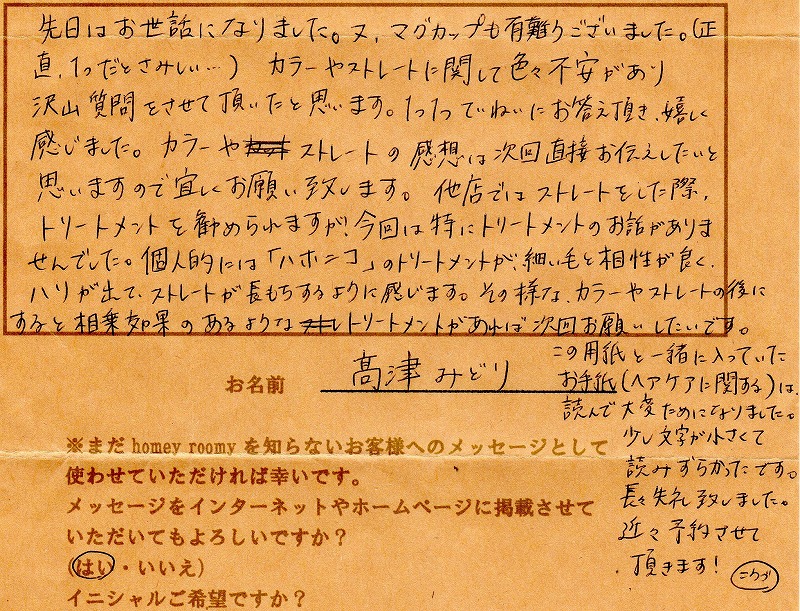 先日はお世話になりました。又、マグカップも有難うございました。(正
直、1つだとさみしい…) カラーやストレートに関して色々不安があり
沢山質問をさせて頂いたと思います。1つ1つていねいにお答え頂き、嬉しく
感じました。カラーやストレートの感想は次回直接お伝えしたいと
思いますので宜しくお願い致します。他店ではストレートをした際、
トリートメントを勧められますが、今回は特にトリートメントのお話がありま
せんでした。個人的には「ハホニコ」のトリートメントが、細い毛と相性が良く、
ハリが出て、ストレートが長もちするように感じます。その様な、カラーやストレートの後に
すると相乗効果のあるようなトリートメントがあれば次回お願いしたいです。
この用紙と一緒に入っていた
お手紙(ヘアケアに関する)は、
読んで大変ためになりました。
少し文字が小さくて
読みずらかったです。
長々失礼致しました。
近々予約させて
頂きます!
お名前 髙津みどり
※まだ homey roomy を知らないお客様へのメッセージとして
使わせていただければ幸いです。
メッセージをインターネットやホームページに掲載させて
いただいてもよろしいですか?
(はい・いいえ)
イニシャルご希望ですか?